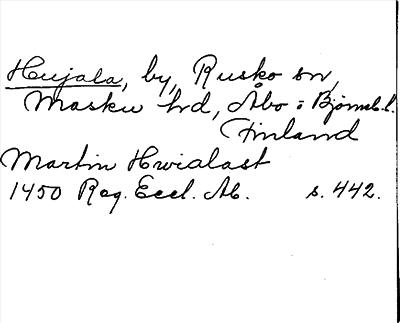 Hujala, by, Rusko sn,
Masku hd, Åbo o Bjørneb. l.
Finland
Martin Hwialast
1450 Reg. Eccl. Ab. s. 442.